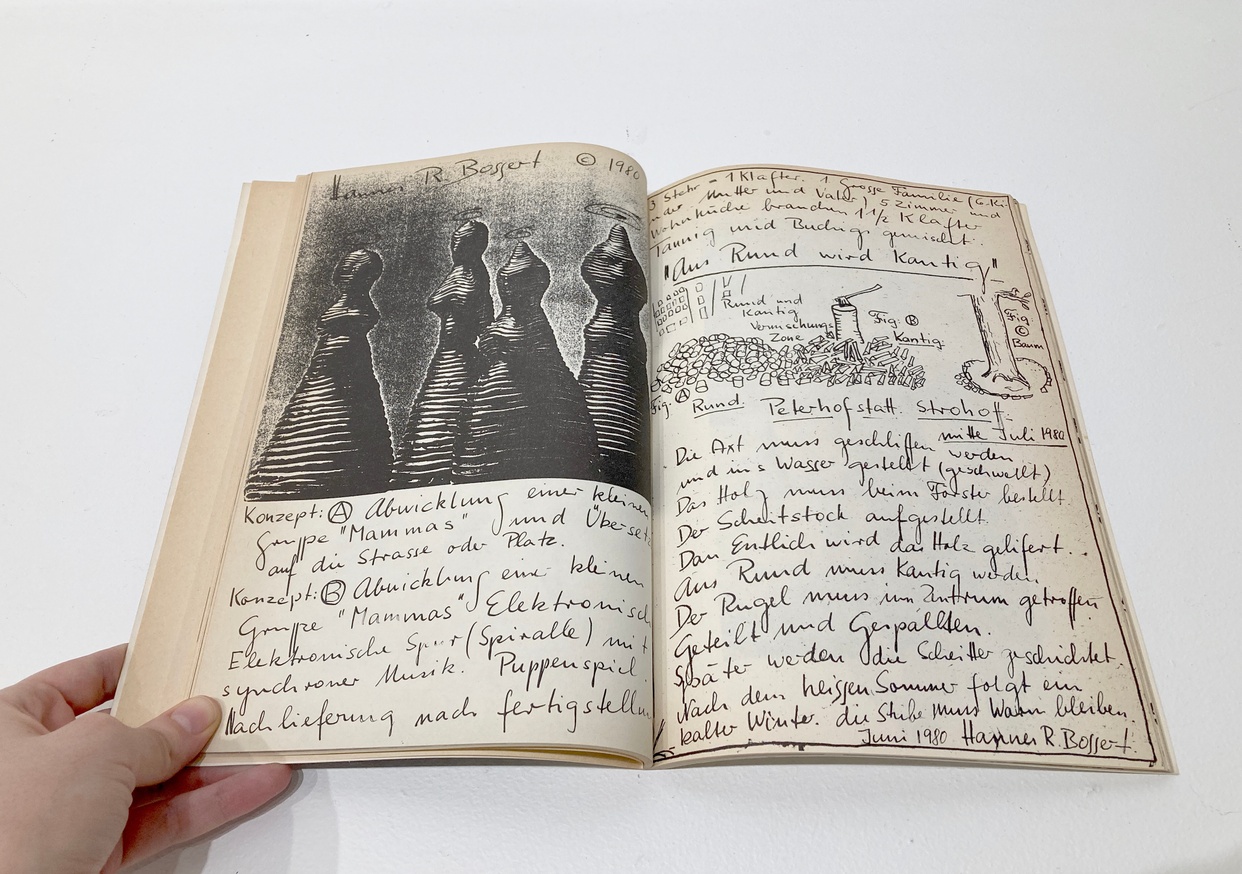 Hannes R. Bossert © 1980
Konzept: Ⓐ Abwicklung einer kleinen
Gruppe "Mammas" und Überset
auf die Strasse oder Platz.
Konzept: Ⓑ Abwicklung einer kleinen
Gruppe "Mammas" Elektronisch
Elektronische Spur (Spiralle) mit
synchroner Musik. Puppenspiel.
Nachlieferung nach fertigstellun
3 Stehr = 1 Klafter. 1 Grosse Familie (6. Ki
Mutter und Vater) 5 Zimmer und
Wohnküche brauchen 1 1/2 Klafter
Tannig und Buchig, gemischt.
"Aus Rund wird Kantig"
Rund und
Kantig
Vermischungs
Zone
Fig. Ⓑ
Kantig.
Fig.
Ⓒ
Baum
Fig. Ⓐ Rund. Peterhofstatt. Strohoff.
mitte Juli 1980
Die Axt muss geschliffen werden
und in's Wasser gestellt (geschwellt)
Das Holz muss beim Förster bestellt.
Der Scheitstock aufgestellt.
Dan Entlich wird das Holz gelifert...
Aus Rund muss Kantig werden.
Der Rugel muss im Zentrum getroffen
Geteilt und Gespällten.
Später werden die Scheitter geschichtet.
Nach dem heissen Sommer folgt ein
kalter Winter. die Stube muss Warm bleiben.
Juni 1980 Hannes R. Bossert.